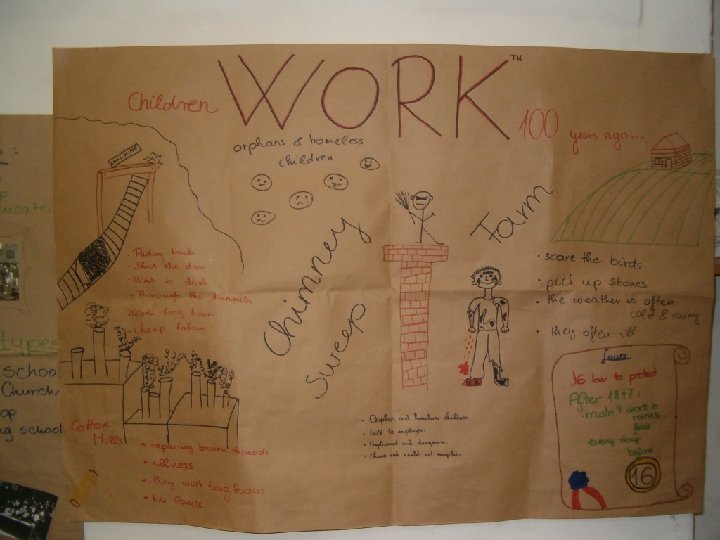 WORK™
Children
100 years ago...
orphans & homeless
children
Chimney
Sweep
Farm
• scare the birds
• pick up stones
• the weather is often
cold & rainy
• they often ill
• Shut the door
• Work in dark
• Through the tunnels
• Work long hours
• Cheap labour
Cotton
Mills
• repairing broken threads
• illness
• they work long hours
• No
• Orphan and homeless children
• Sold to employer
• Unpleasant and dangerous
Laws
No law to protect
After 1847:
mustn't work in
mines
every day
before
16
types
School
Church